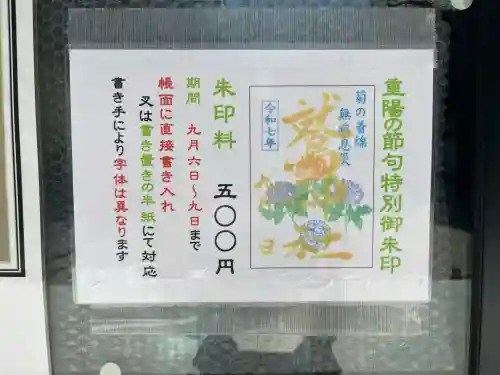 重陽の節句特別御朱印
菊の着綿
無病息災
鷲宮神社
令和七年
朱印料 五〇〇円
期間 九月六日~九日まで
帳面に直接書き入れ
又は書き置きの半紙にて対応
書き手により字体は異なります